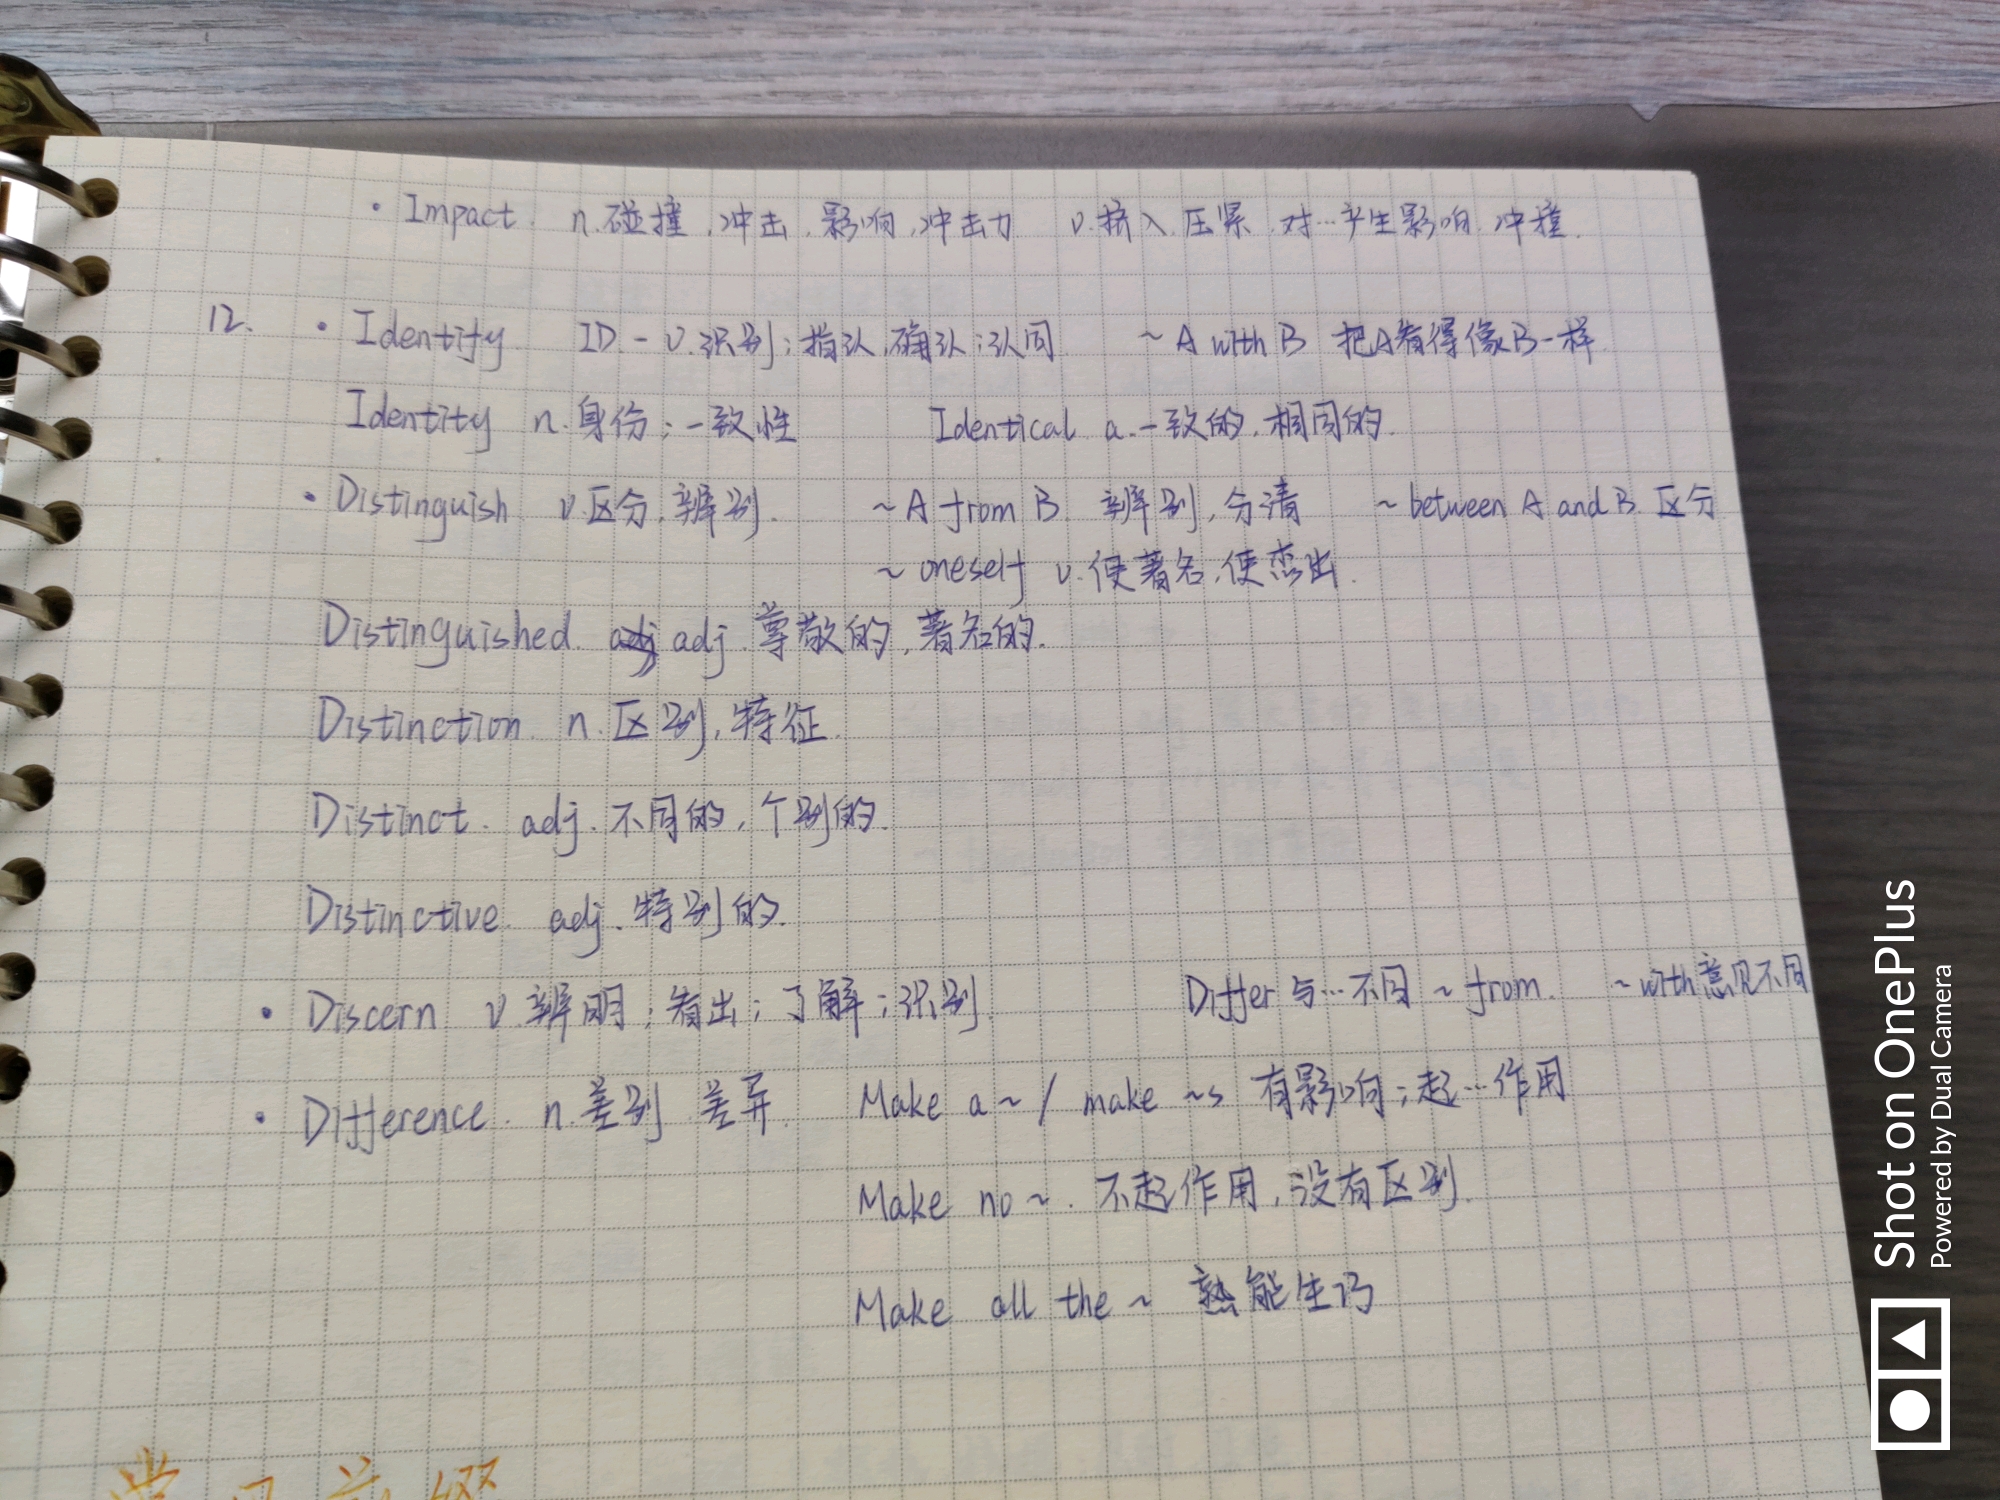 • Impact. n.碰撞,冲击.影响,冲击力 v.挤入.压紧.对…产生影响.冲撞.
12. • Identify ID - v.识别;指认,确认;认同 ~ A with B 把A看得像B一样
Identity n.身份;一致性 Identical a.一致的.相同的.
• Distinguish v.区分,辨别. ~ A from B. 辨别,分清 ~ between A and B. 区分
~ oneself v.使著名,使
Distinguished. adj.尊敬的,著名的.
Distinction n.区别,特征.
Distinct. adj.不同的,个别的.
Distinctive. adj.特别的.
• Discern v.辨明;看出;了解;识别. Differ 与…不同 ~ from. ~ with意见不同
• Difference. n.差别.差异 Make a ~ / make ~s 有影响;起…作用
Make no ~. 不起作用,没有区别.
Make all the ~ 熟能生巧
常见前缀
Shot on OnePlus
Powered by Dual Camera